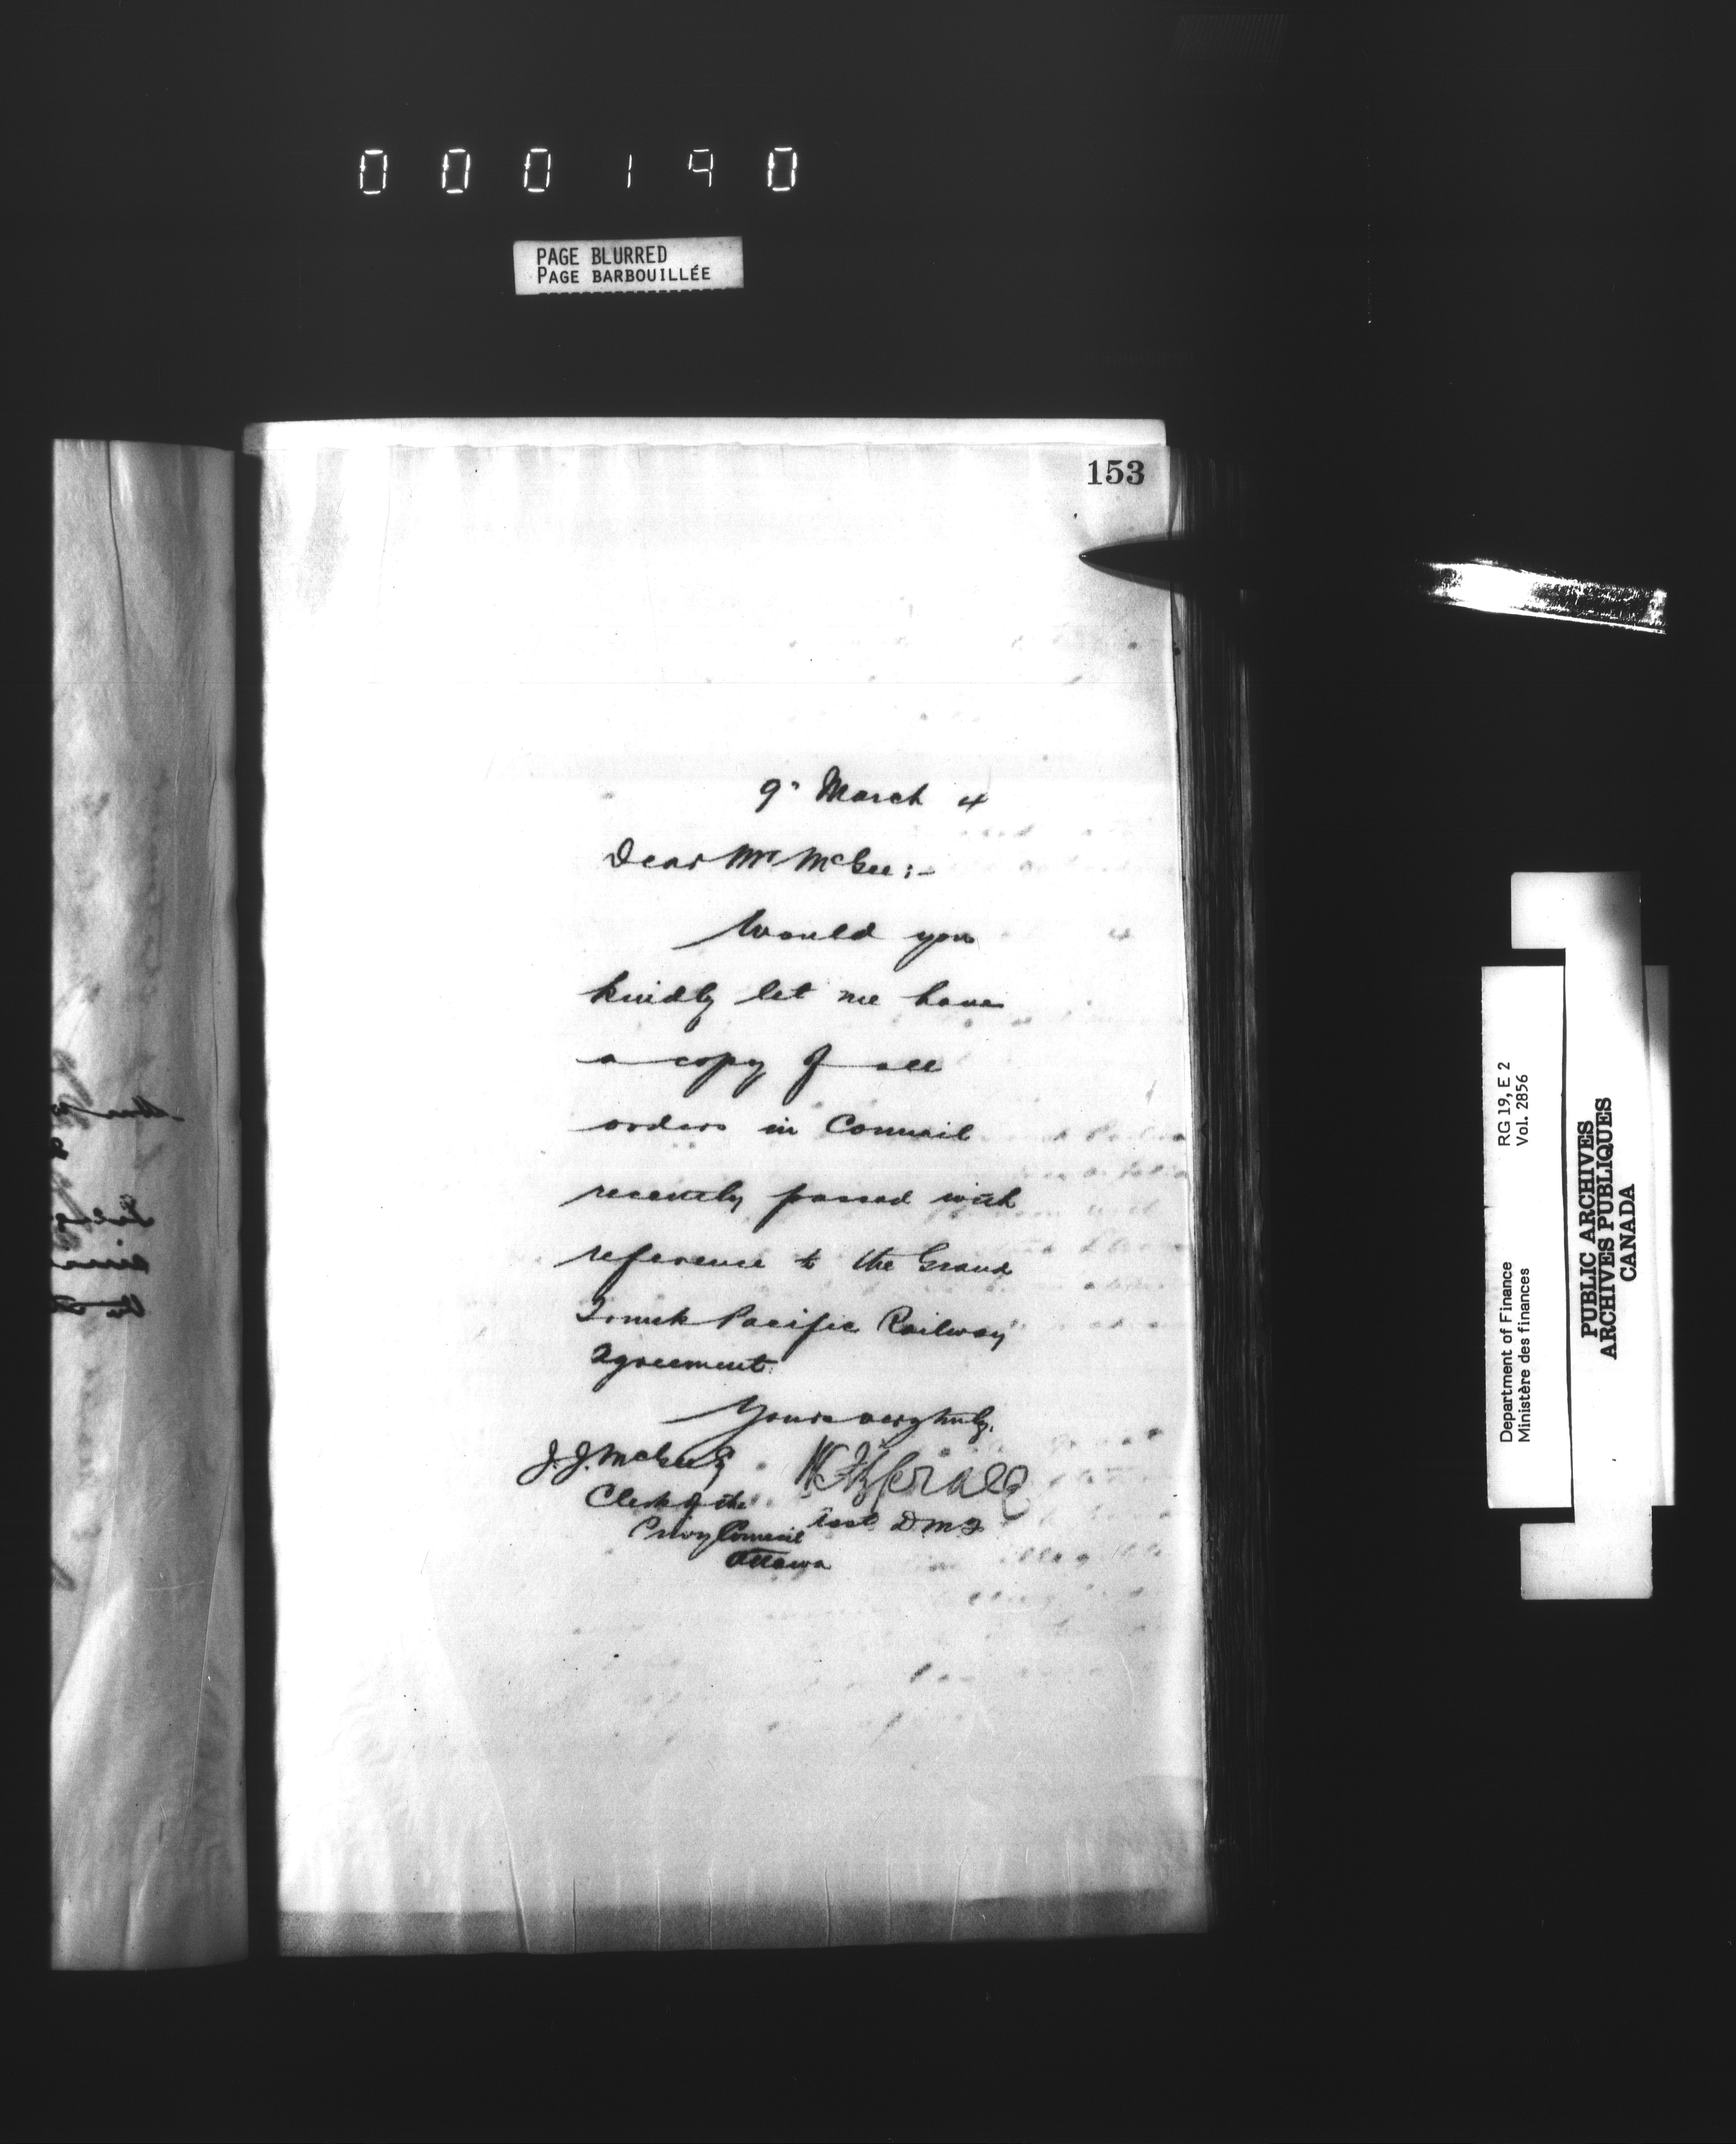 000190
PAGE BLURRED
PAGE BARBOUILLÉE
153
9" March 4
Dear Mr McGee:-
Would you
kindly let me have
a copy of all
orders in Council
recently passed with
reference to the Grand
Trunk Pacific Railway
Agreement.
Yours very truly,
J. J. McGee Esq
Clerk of the
Privy Council
Ottawa
Asst D M F
RG 19, E 2
Vol. 2856
Department of Finance
Ministère des finances
PUBLIC ARCHIVES
ARCHIVES PUBLIQUES
CANADA